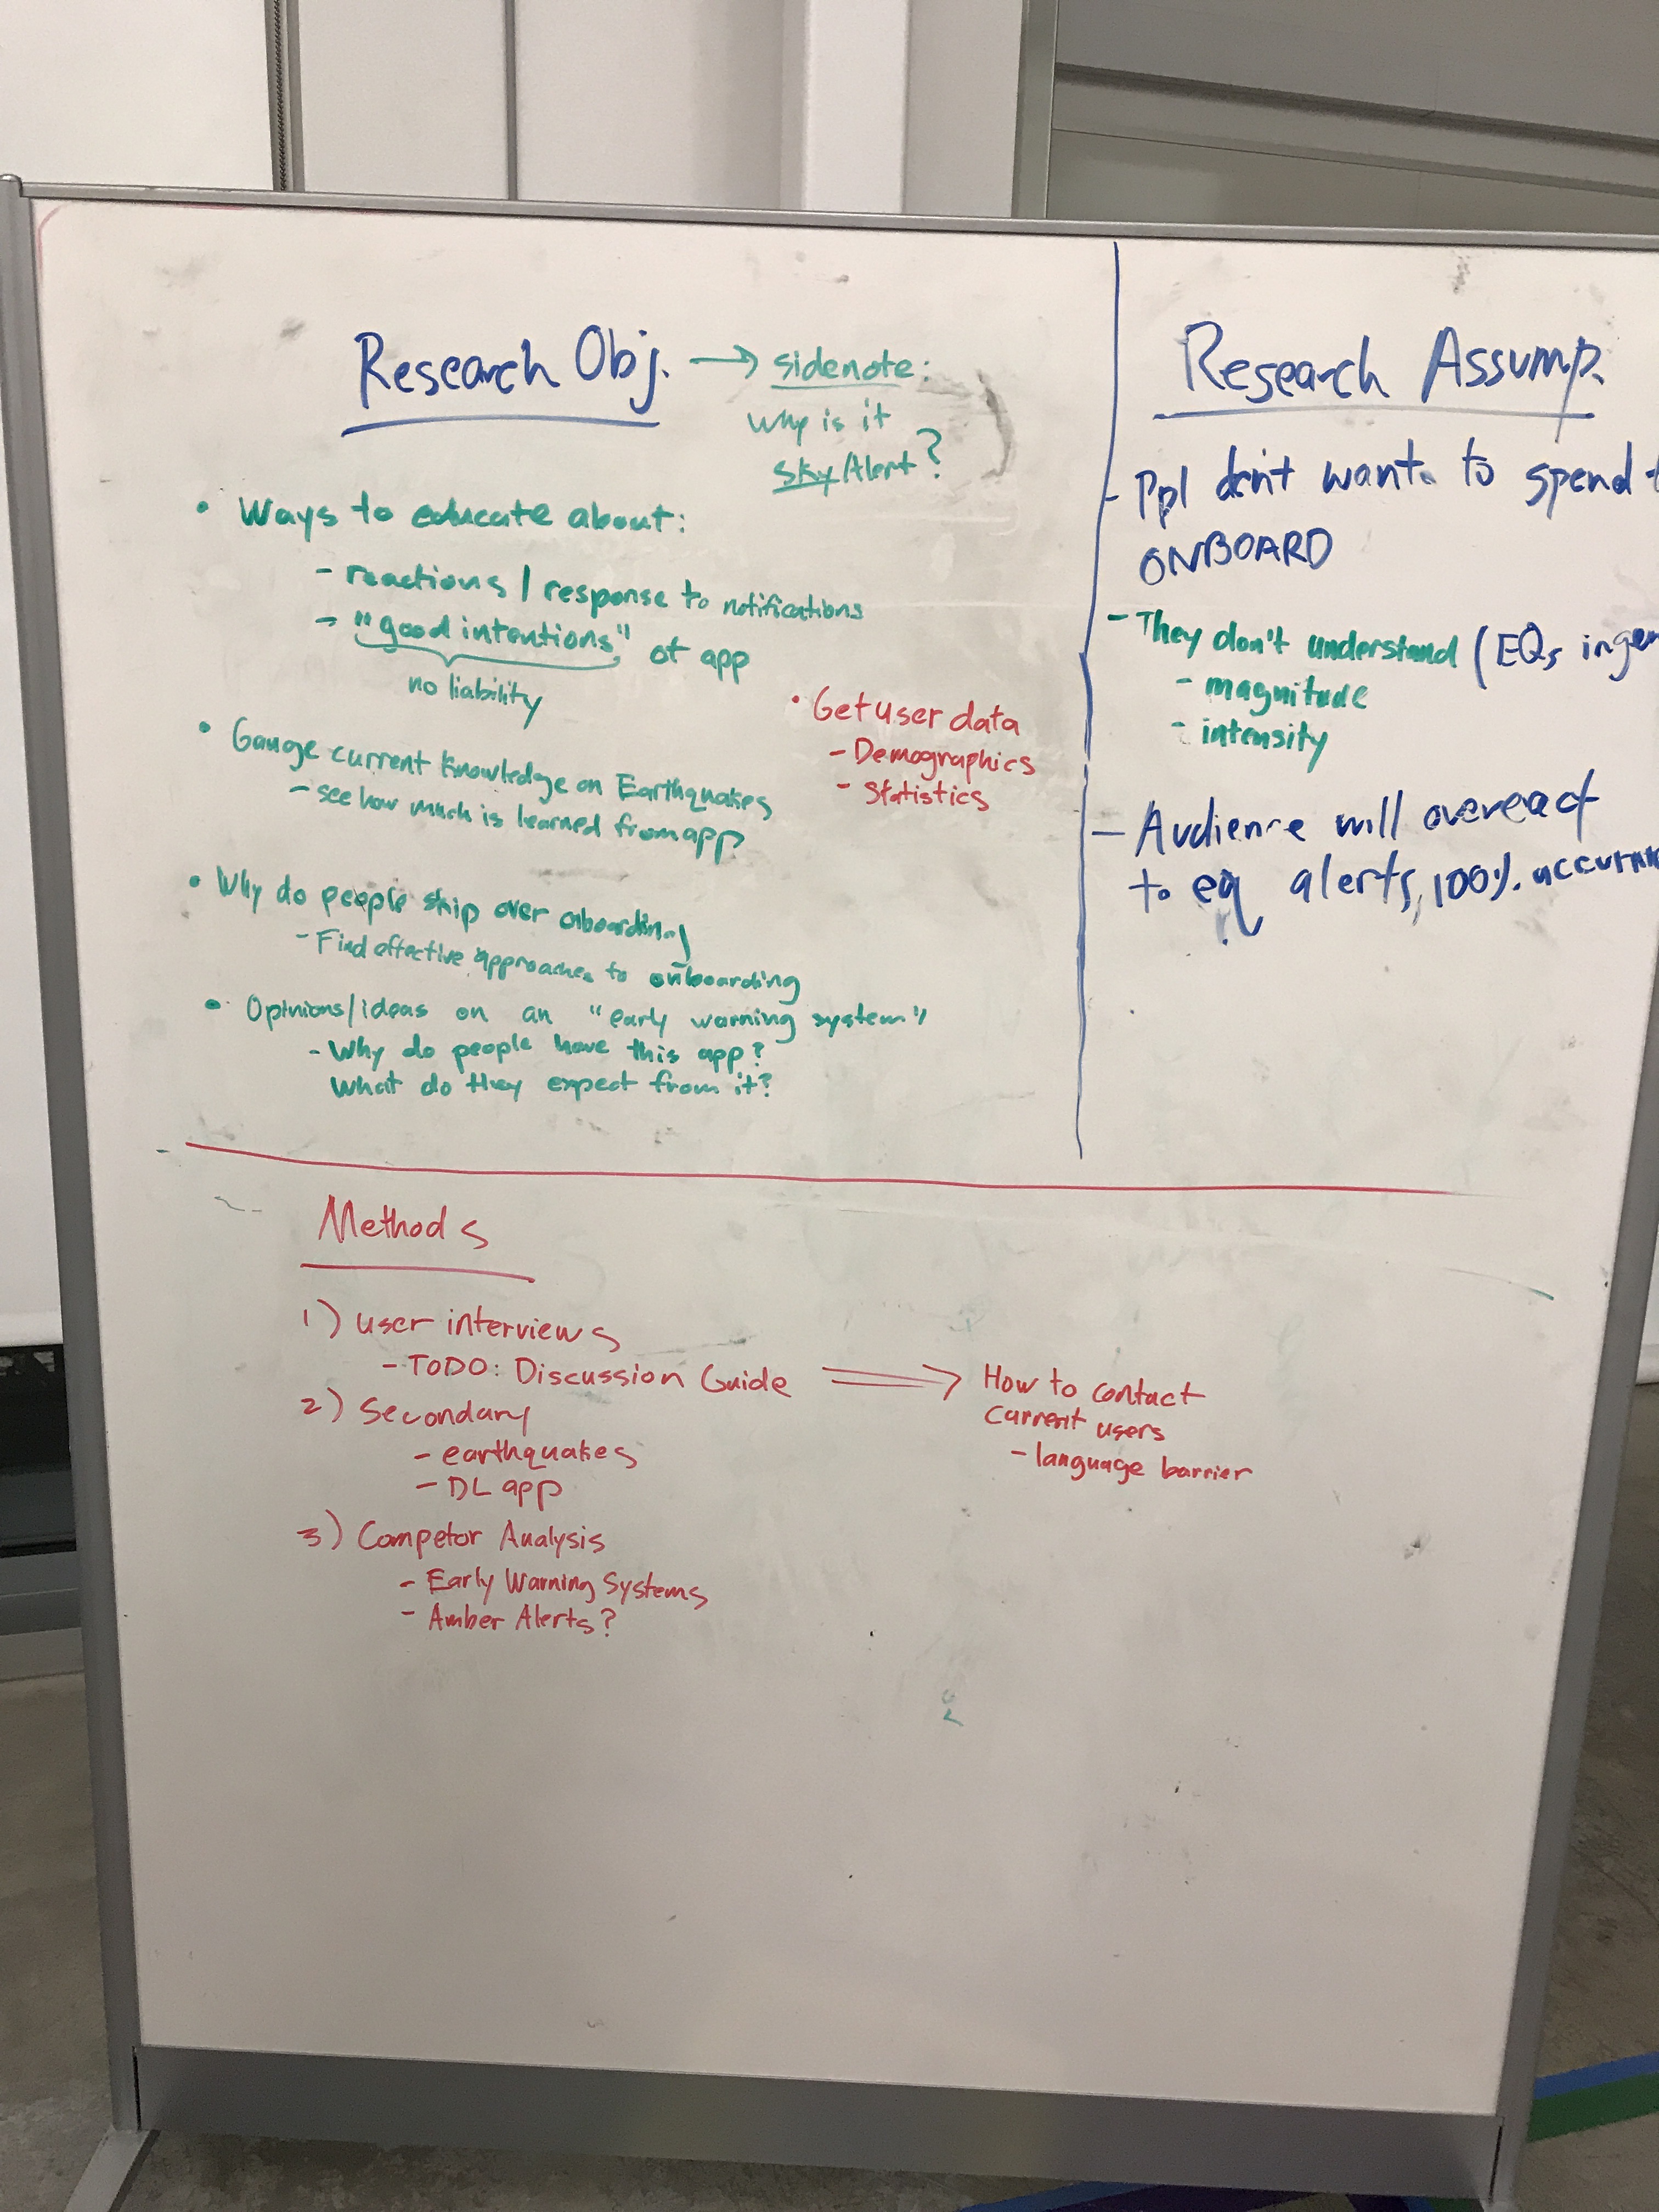 Research Obj. → sidenote:
why is it
SkyAlert?
• Ways to educate about:
- reactions / response to notifications
- "good intentions" of app
no liability
• Get user data
- Demographics
- Statistics
• Gauge current knowledge on Earthquakes
- see how much is learned from app
• Why do people skip over onboarding
- Find effective approaches to onboarding
• Opinions/ideas on an "early warning system"
- Why do people have this app?
What do they expect from it?
Research Assump.
- Ppl don't want to spend
ONBOARD
- They don't understand (EQs in
- magnitude
- intensity
- Audience will overreact
to eq alerts, 100%
Methods
1) user interviews
- TODO: Discussion Guide ⇒ How to contact
current users
- language barrier
2) Secondary
- earthquakes
- DL app
3) Competor Analysis
- Early Warning Systems
- Amber Alerts?